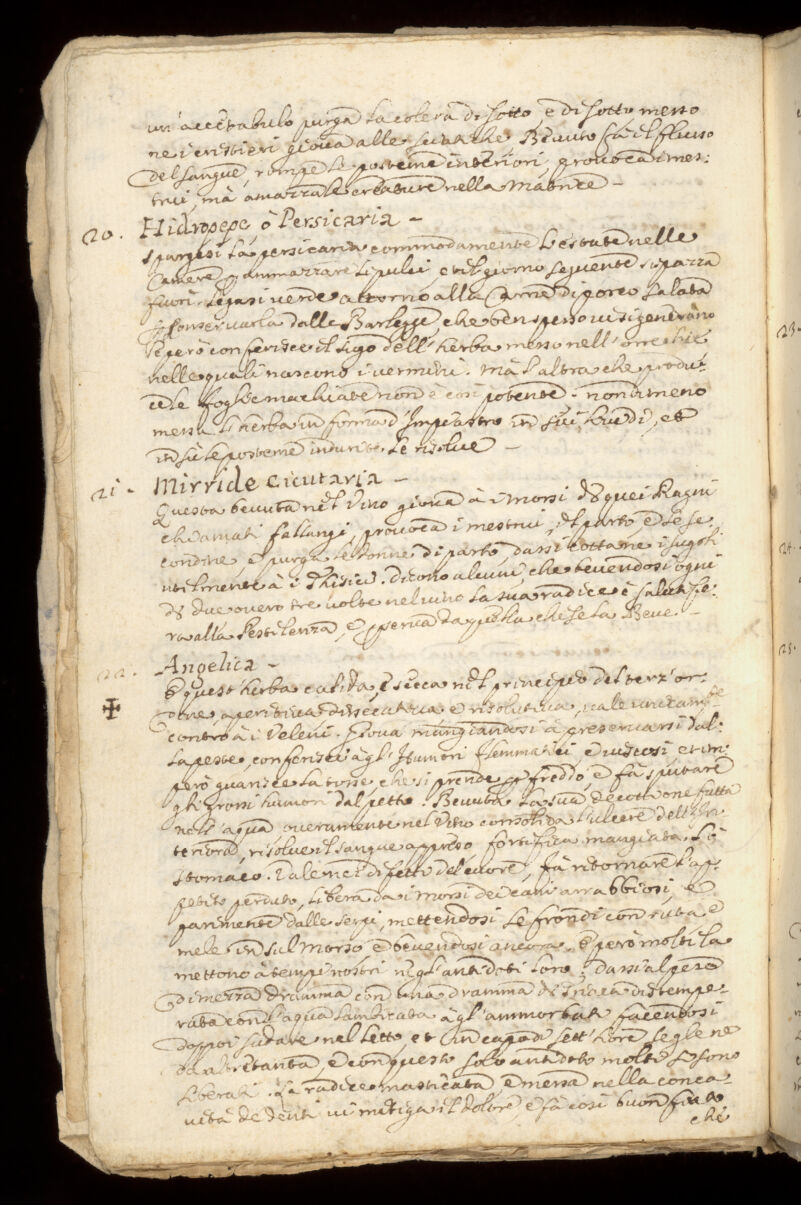 un'accetabulo purga la colera di sotto, e di sotto messo
ne i cristieri giova alle sciatiche. Bevuto fà il flusso
del sangue, rompe le posteme interiori, provoca i mes:
trui, mà amazza le creature nella Matrice –
20. Hidropepe ò Persicaria –
Spargesi la persicaria commodamente l'estate nelle
Camere p ammazzare li pulci, et il giorno seguente si spazza
fuori. Legasi verde attorno alla Carne di porco salata
p conservarla dalle che ben spesso vi si generano
Et però conferisce il sugo dell'herba messo nell'orrechie
nelle quali nascono i vermini. Mà l'altra che produ:
ce le foglie machiate non è così potente. nondimeno
messa l'herba in forma d'Impiastro in sù i lividi, et
in sù le posteme indurite le risolve –
21. Mirride Cicutaria –
Questa bevuta nel Vino giova à i morsi di quei Ragni
chiamati fallangi, provoca i mestrui, il parto e le se:
condine e purga le donne di parto, dassi cotta ne i sugoli
utilmente à i Thisici. Dicono alcuni, che bevendosi ogni
dì due overo tre volte nel vino la sua radice è salutife:
ra alla Pestilenza, e preserva da quella chi se la Beve. –
22. Angelica –
✠
E quest'herba calida, e secca nel principio del terz'or:
dine, aperitiva dissecativa e risolutiva, vale unicamte
contro à i Veleni. Giova mangiandosi à preservarsi dal:
la peste, conferisce à gl'Humori flemmatici, e viscosi et im:
però guarisce la tosse, che si prende p freddo, e fà sputare
gli grossi humori dal petto. Bevuta la sua decottione fatta
nell'aqua overamente nel Vino consolida l'ulcere dell'In:
teriora, risolve il sangue appreso fortifica mangiata lo
stomaco. Vale nei difetti del cuore, fà ritornare l'ap:
petito perduto, libera da i morsi dei cani arrabbiosi, e
parimente dalle serpi, mettendosi le frondi con ruta e
mele in sul morso e bevendosi ancora. E però molti la
mettono à tempi nostri ne gl'antidoti loro; dassi al peso
di mezza dramma con una dramma di Triaca distempe:
rata con l'aqua lambicata à gl'ammorbati facendosi
doppoi sudare nel letto et in capo di sett'hore se gle ne
dà altretanta, e con questo solo antidoto molti si sono
liberati. La radice masticata, e messa nella conca:
vità de denti vi mitiga il dolore, e fà così buon fiato
che
23.
24.
25.